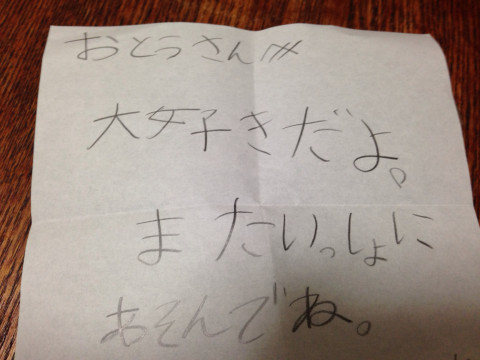 おとうさん〃
大好きだよ。
またいっしょに
あそんでね。